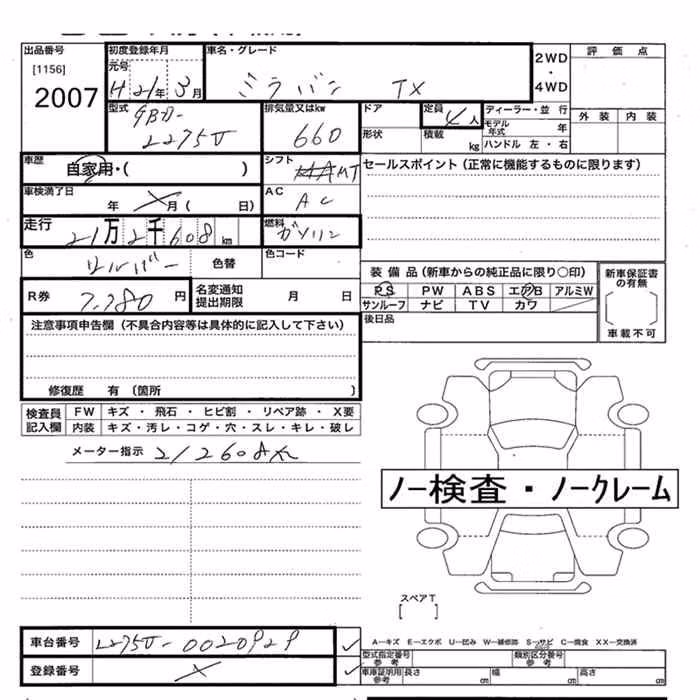 出品番号 初度登録年月 車名・グレード 2WD・4WD 評価点
[1156] 元号 H21年3月 ミラバン TX
2007 型式 排気量又はkw ドア 定員 4人 ディーラー・並行 外装 内装
GBD-L275V 660 形状 積載 kg モデル年式 年
ハンドル 左・右
車歴 自家用・( ) シフト MT セールスポイント(正常に機能するものに限ります)
車検満了日 年 月( 日) AC AC
走行 21万2千608km 燃料 ガソリン
色 シルバー 色替 色コード
装備品(新車からの純正品に限り〇印) 新車保証書の有無
R券 7,780円 名変通知提出期限 月 日 PS PW ABS エアB アルミW
サンルーフ ナビ TV カワ
車載不可
注意事項申告欄(不具合内容等は具体的に記入して下さい) 後日品
修復歴 有(箇所 )
検査員記入欄 FW キズ・飛石・ヒビ割・リペア跡・X要
内装 キズ・汚レ・コゲ・穴・スレ・キレ・破レ
メーター指示 212608km
ノー検査・ノークレーム
スペアT
[ ]
車台番号 L275V-0020929 A-キズ E-エクボ U-凹み W-補修跡 S-サビ C-腐食 XX-交換済
型式指定番号 参考 類別区分番号 参考
登録番号 X 車庫証明用参考 長さ cm 幅 cm 高さ cm